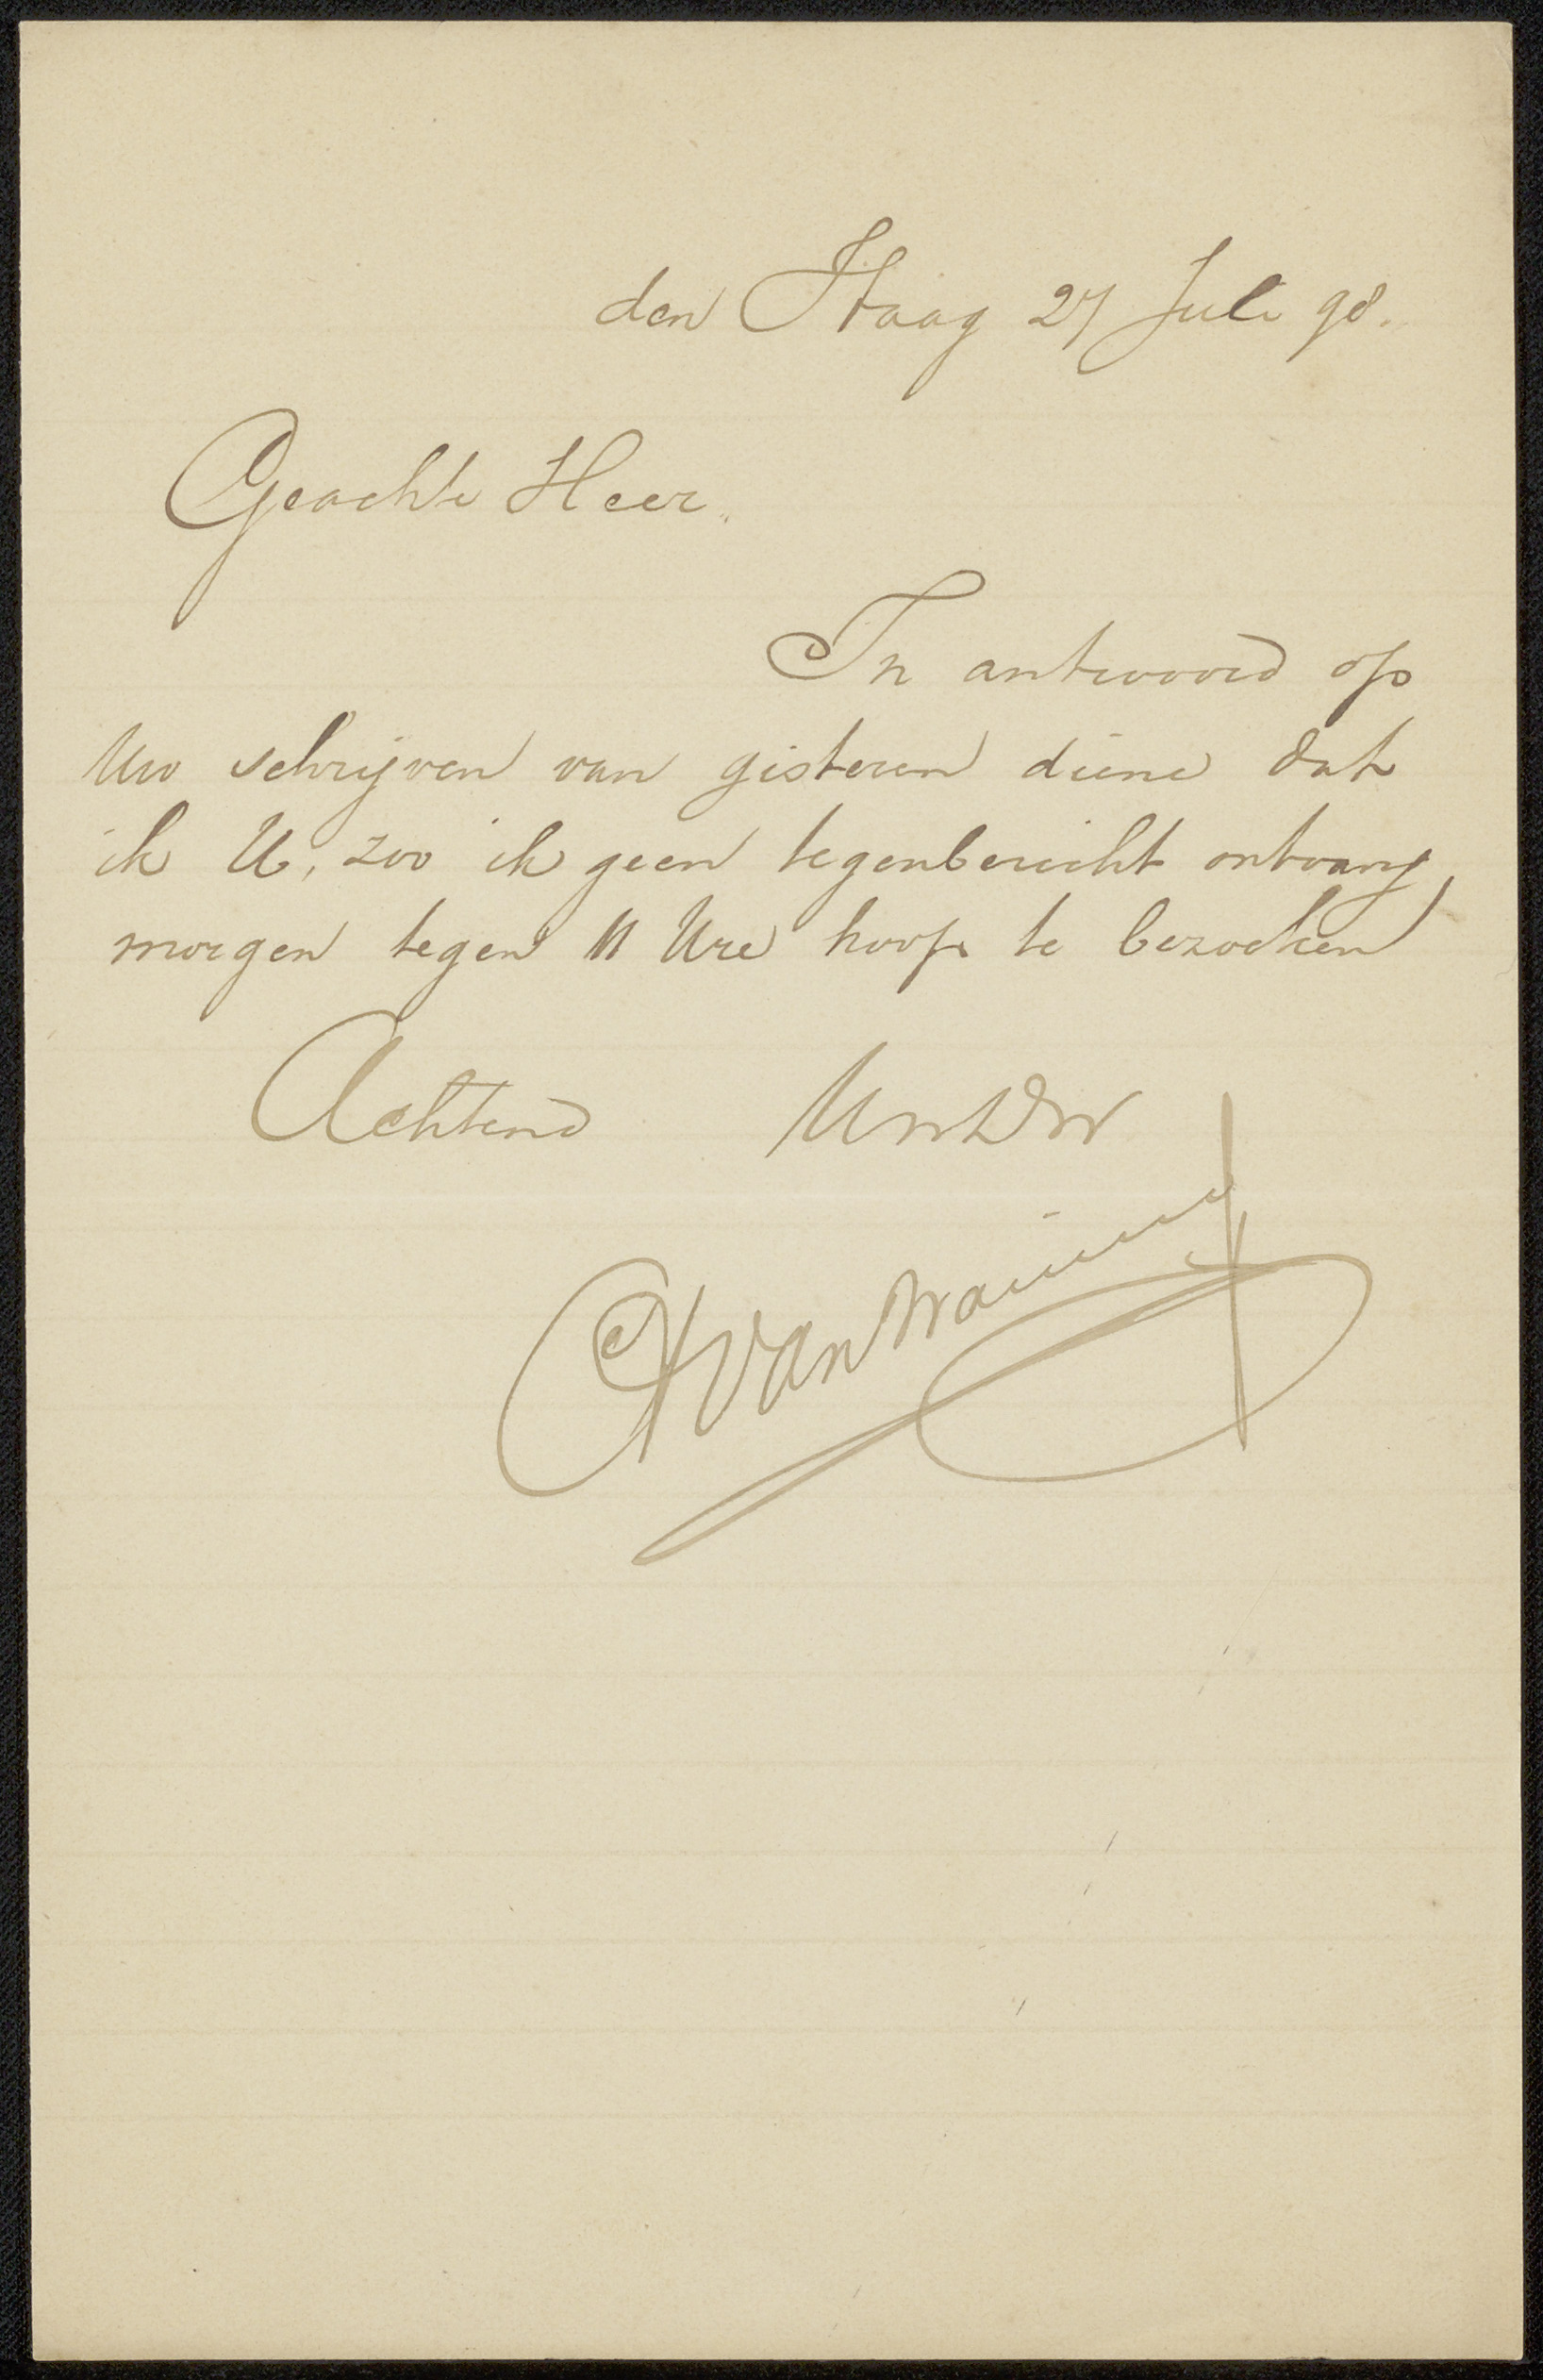 den Haag 27 Juli 98.
Geachte Heer.
In antwoord op
Uw schrijven van gisteren diene dat
ik U, zoo ik geen tegenbericht ontvang,
morgen tegen 11 Ure hoop te bezoeken
Achtend UwDw
van